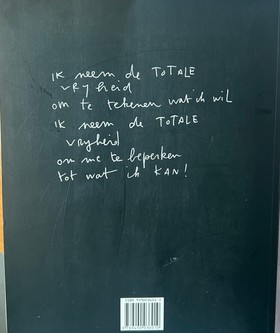 ik neem de TOTALE
vryheid
om te tekenen wat ik wil
ik neem de TOTALE
vryheid
om me te beperken
tot wat ik KAN!